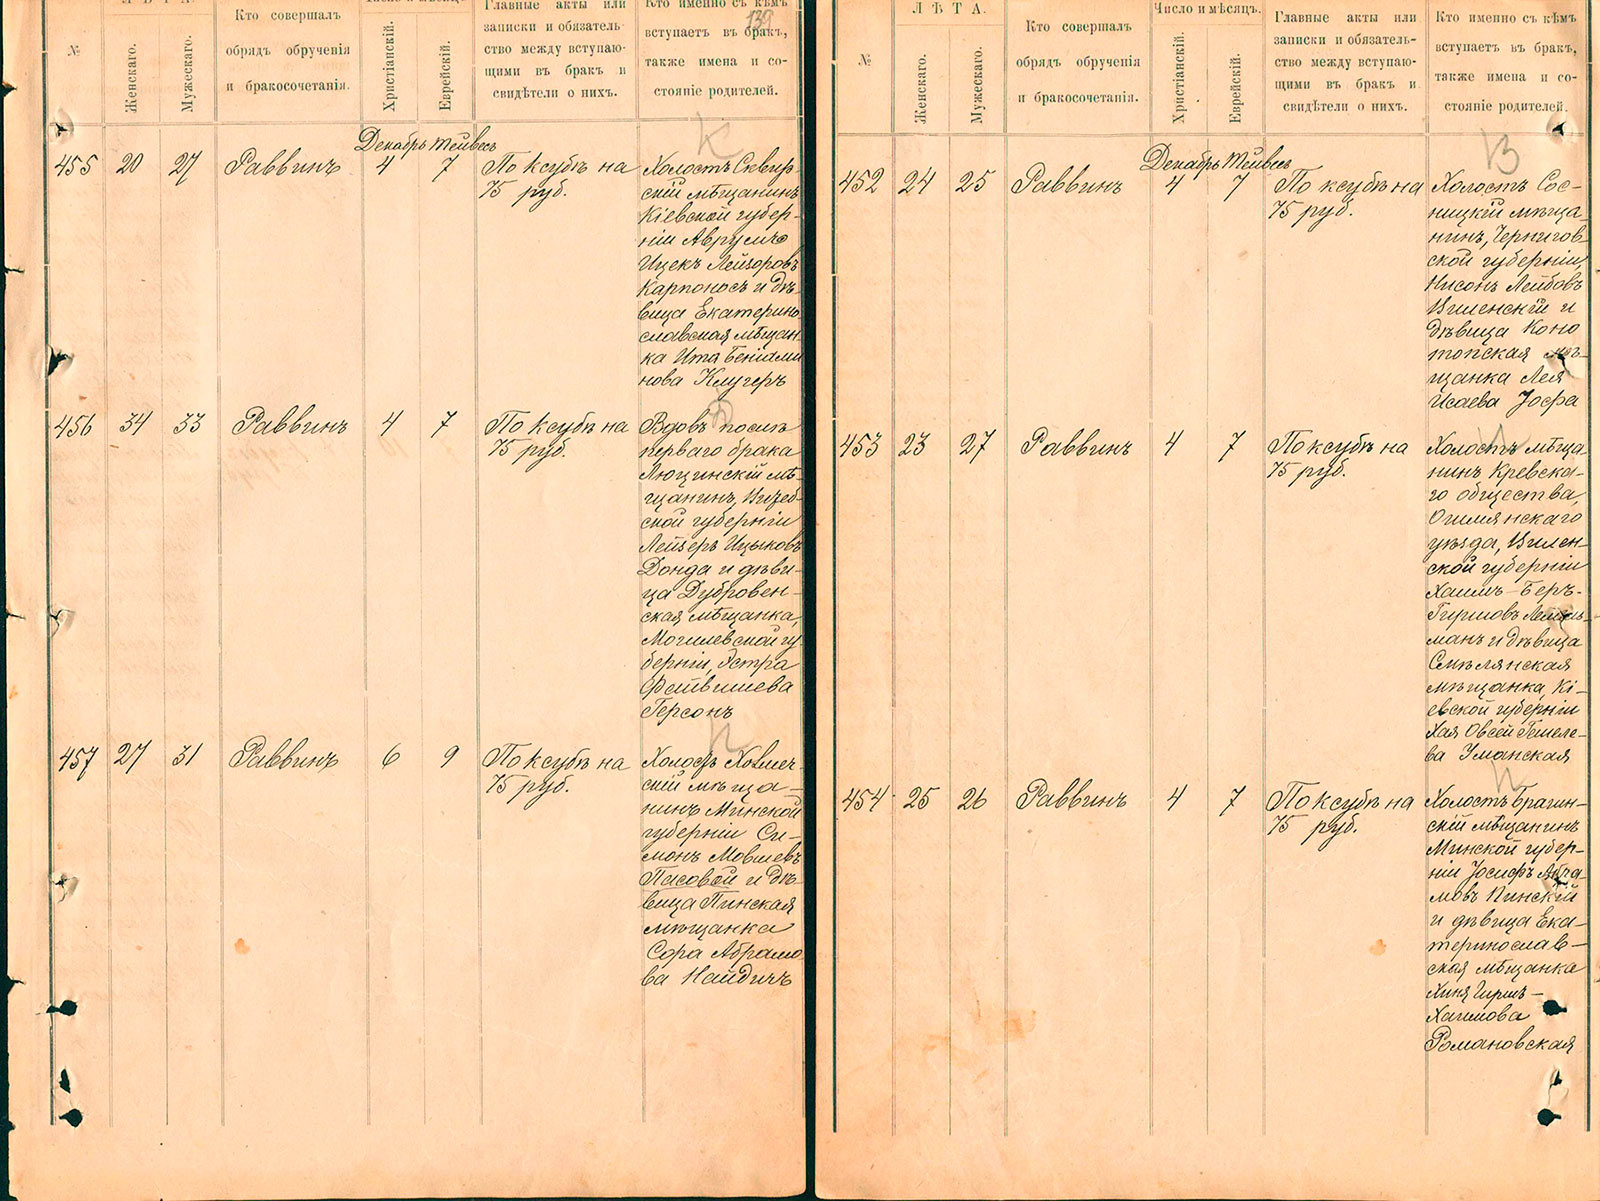 139
Л Ѣ Т А.
Число и мѣсяцъ.
№
Женскаго.
Мужескаго.
Кто совершалъ
обрядъ обрученія
и бракосочетанія.
Христіанскій.
Еврейскій.
Главные акты или
записки и обязатель-
ство между вступаю-
щими въ бракъ и
свидѣтели о нихъ.
Кто именно съ кѣмъ
вступаетъ въ бракъ,
также имена и со-
стояніе родителей.
К
Декабрь Тейвесъ
455 20 27 Раввинъ 4 7 По ксубѣ на
75 руб.
Холостъ Сквир-
скій мѣщанинъ
Кіевской губер-
ніи Аврумъ
Ицекъ Лейзоровъ
Карпоносъ и дѣ-
вица Екатерино-
славская мѣщан-
ка Ита Беніами
нова Клугеръ
456 34 33 Раввинъ 4 7 По ксубѣ на
75 руб.
Вдовъ послѣ
перваго брака
Люцинскій мѣ-
щанинъ, Витеб-
ской губерніи
Лейзеръ Ицыковъ
Донда и дѣви-
ца Дубровен-
ская мѣщанка,
Могилевской гу-
берніи, Эстра
Фейвишева
Герсонъ
457 27 31 Раввинъ 6 9 По ксубѣ на
75 руб.
Холостъ Холмеч-
скій мѣща-
нинъ Минской
губерніи Си-
монъ Мовшевъ
Пасовой и дѣ-
вица Пинская
мѣщанка
Сора Абрамо
ва Найдичъ
Л Ѣ Т А.
Число и мѣсяцъ.
№
Женскаго.
Мужескаго.
Кто совершалъ
обрядъ обрученія
и бракосочетанія.
Христіанскій.
Еврейскій.
Главные акты или
записки и обязатель-
ство между вступаю-
щими въ бракъ и
свидѣтели о нихъ.
Кто именно съ кѣмъ
вступаетъ въ бракъ,
также имена и со-
стояніе родителей.
В
Декабрь Тейвесъ
452 24 25 Раввинъ 4 7 По ксубѣ на
75 руб.
Холостъ Сос-
ницкій мѣща-
нинъ, Чернигов
ской губерніи,
Нисонъ Лейбовъ
Виленскій и
дѣвица Коно
топская мѣ-
щанка Лея
Исаева Іосфа
453 23 27 Раввинъ 4 7 По ксубѣ на
75 руб.
Холостъ мѣща-
нинъ Кревска-
го общества,
Ошмянскаго
уѣзда, Вилен-
ской губерніи
Хаимъ-Беръ-
Гиршовъ
манъ и дѣвица
Смѣлянская
мѣщанка, Кі-
евской губерніи
Хая Овсей Гешеле-
ва Уманская
454 25 26 Раввинъ 4 7 По ксубѣ на
75 руб.
Холостъ Брагин-
скій мѣщанинъ
Минской губер-
ніи Іосифъ Абра-
мовъ Пинскій
и дѣвица Ека-
теринослав-
ская мѣщанка
Хиня Гиршъ-
Хаимова
Романовская